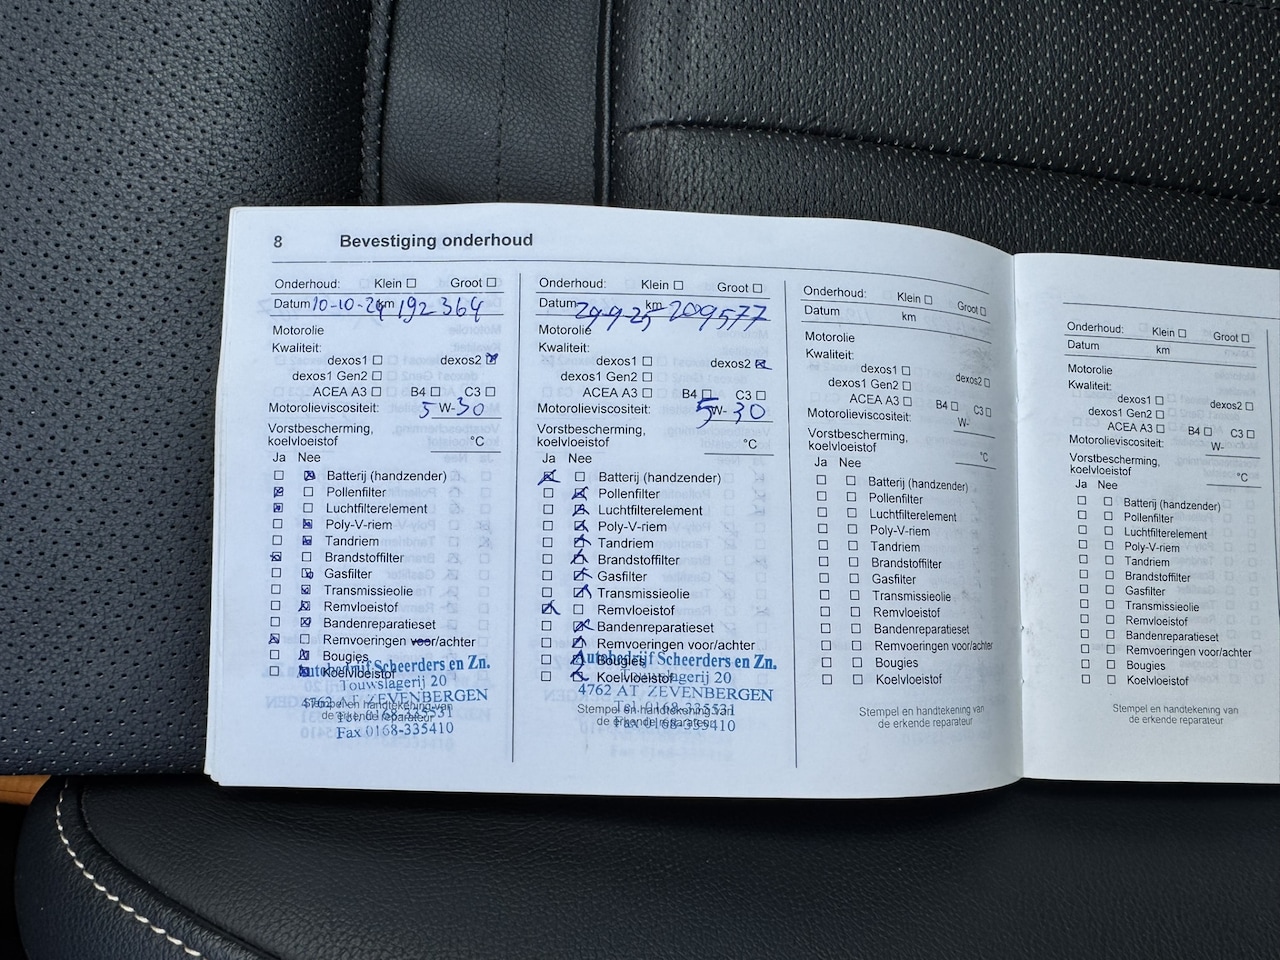 8 Bevestiging onderhoud
Onderhoud: Klein ☐ Groot ☐
Datum 10-10-24 km 192 364
Motorolie
Kwaliteit:
dexos1 ☐ dexos2 ☒
dexos1 Gen2 ☐
ACEA A3 ☐ B4 ☐ C3 ☐
Motorolieviscositeit: 5 W- 30
Vorstbescherming,
koelvloeistof °C
Ja Nee
☐ ☒ Batterij (handzender)
☒ ☐ Pollenfilter
☒ ☐ Luchtfilterelement
☐ ☒ Poly-V-riem
☐ ☒ Tandriem
☒ ☐ Brandstoffilter
☐ ☒ Gasfilter
☐ ☒ Transmissieolie
☐ ☒ Remvloeistof
☐ ☒ Bandenreparatieset
☒ ☐ Remvoeringen voor/achter
☐ ☒ Bougies
☐ ☒ Koelvloeistof
Autobedrijf Scheerders en Zn.
Touwslagerij 20
4762 AT ZEVENBERGEN
Stempel en handtekening van
Tel. 0168-335531
de erkende reparateur
Fax 0168-335410
Onderhoud: Klein ☐ Groot ☐
Datum 29-9-25 km 209577
Motorolie
Kwaliteit:
dexos1 ☐ dexos2 ☒
dexos1 Gen2 ☐
ACEA A3 ☐ B4 ☐ C3 ☐
Motorolieviscositeit: 5 W- 30
Vorstbescherming,
koelvloeistof °C
Ja Nee
☒ ☐ Batterij (handzender)
☐ ☒ Pollenfilter
☐ ☒ Luchtfilterelement
☐ ☒ Poly-V-riem
☐ ☒ Tandriem
☐ ☒ Brandstoffilter
☐ ☒ Gasfilter
☐ ☒ Transmissieolie
☒ ☐ Remvloeistof
☐ ☒ Bandenreparatieset
☐ ☒ Remvoeringen voor/achter
☐ ☒ Bougies
☐ ☒ Koelvloeistof
Autobedrijf Scheerders en Zn.
Touwslagerij 20
4762 AT ZEVENBERGEN
Stempel en handtekening van
Tel. 0168-335531
de erkende reparateur
Fax 0168-335410
Onderhoud: Klein ☐ Groot ☐
Datum km
Motorolie
Kwaliteit:
dexos1 ☐ dexos2 ☐
dexos1 Gen2 ☐
ACEA A3 ☐ B4 ☐ C3 ☐
Motorolieviscositeit: W-
Vorstbescherming,
koelvloeistof °C
Ja Nee
☐ ☐ Batterij (handzender)
☐ ☐ Pollenfilter
☐ ☐ Luchtfilterelement
☐ ☐ Poly-V-riem
☐ ☐ Tandriem
☐ ☐ Brandstoffilter
☐ ☐ Gasfilter
☐ ☐ Transmissieolie
☐ ☐ Remvloeistof
☐ ☐ Bandenreparatieset
☐ ☐ Remvoeringen voor/achter
☐ ☐ Bougies
☐ ☐ Koelvloeistof
Stempel en handtekening van
de erkende reparateur
Onderhoud: Klein ☐ Groot ☐
Datum km
Motorolie
Kwaliteit:
dexos1 ☐ dexos2 ☐
dexos1 Gen2 ☐
ACEA A3 ☐ B4 ☐ C3 ☐
Motorolieviscositeit: W-
Vorstbescherming,
koelvloeistof °C
Ja Nee
☐ ☐ Batterij (handzender)
☐ ☐ Pollenfilter
☐ ☐ Luchtfilterelement
☐ ☐ Poly-V-riem
☐ ☐ Tandriem
☐ ☐ Brandstoffilter
☐ ☐ Gasfilter
☐ ☐ Transmissieolie
☐ ☐ Remvloeistof
☐ ☐ Bandenreparatieset
☐ ☐ Remvoeringen voor/achter
☐ ☐ Bougies
☐ ☐ Koelvloeistof
Stempel en handtekening van
de erkende reparateur